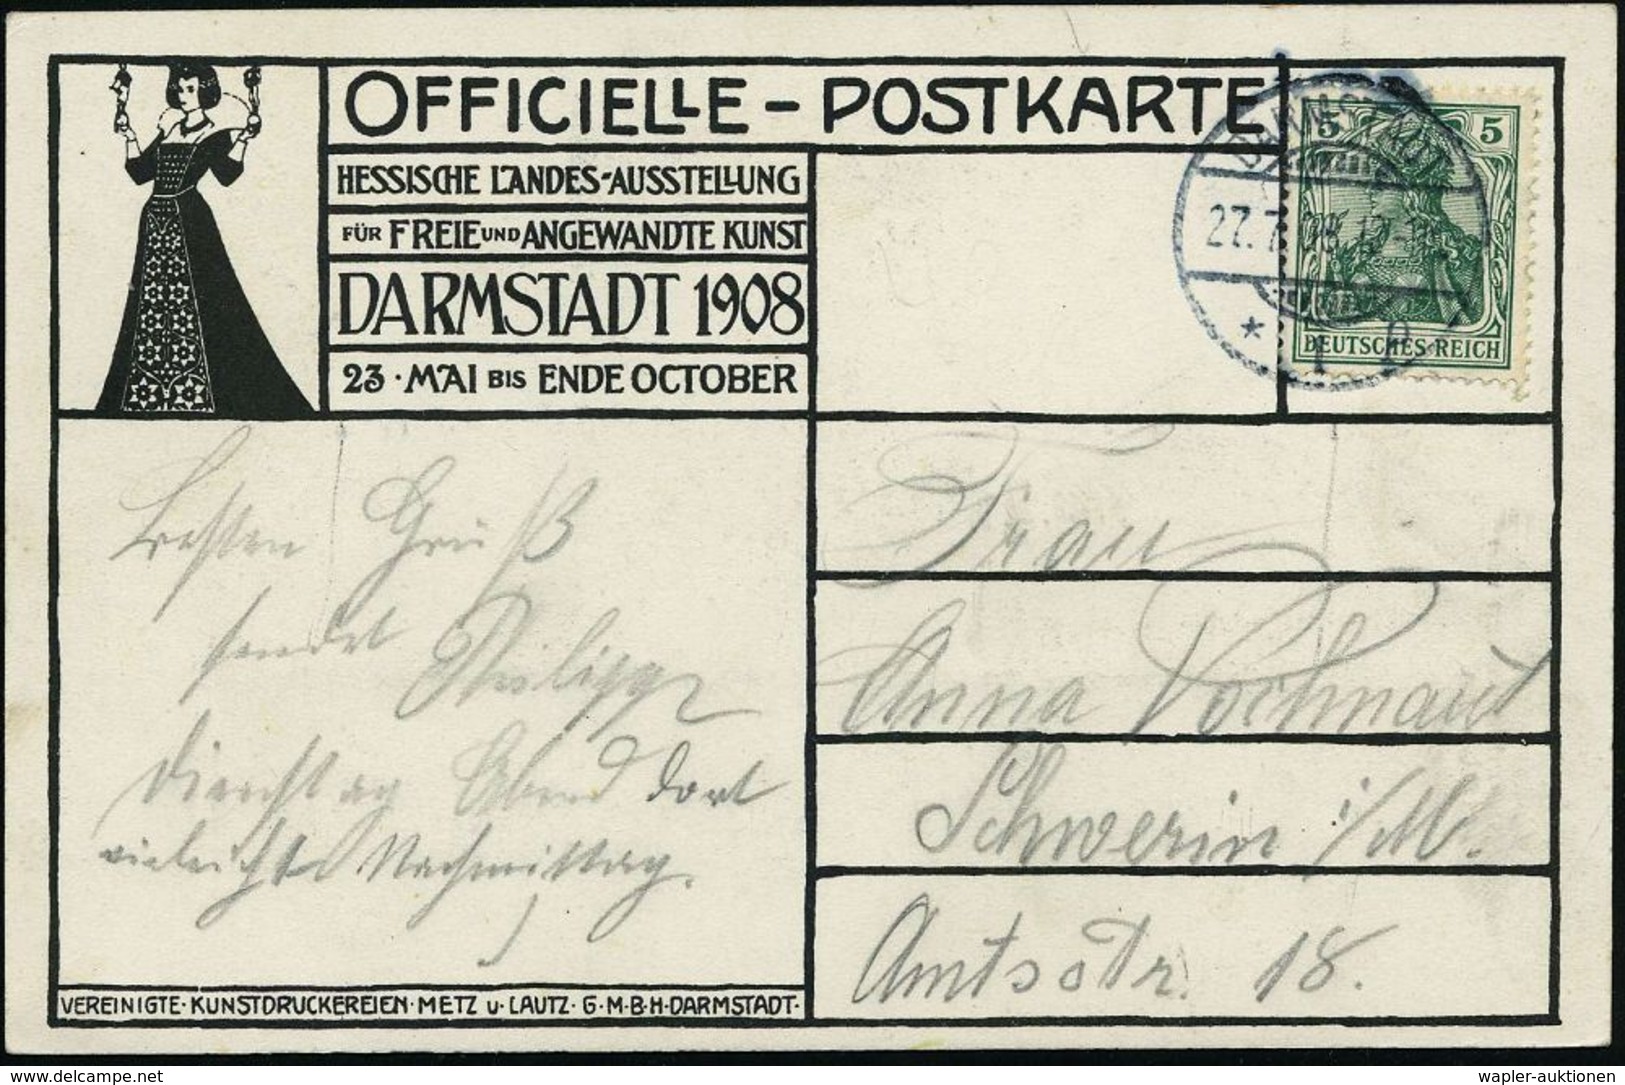 OFFICIELLE - POSTKARTE
HESSISCHE LANDES-AUSSTELLUNG
FÜR FREIE UND ANGEWANDTE KUNST
DARMSTADT 1908
23 · MAI BIS ENDE OCTOBER
DARMSTADT
27.7.
* 1
5 5
DEUTSCHES REICH
Besten Gruß
sendet Philipp
Dienstag Abend dort
vieleicht Nachmittag.
Frau
Anna
Schwerin i/M.
Amtsstr. 18.
VEREINIGTE · KUNSTDRUCKEREIEN · METZ U · LAUTZ · G · M · B · H · DARMSTADT ·
delcampe.net
wapler-auktionen